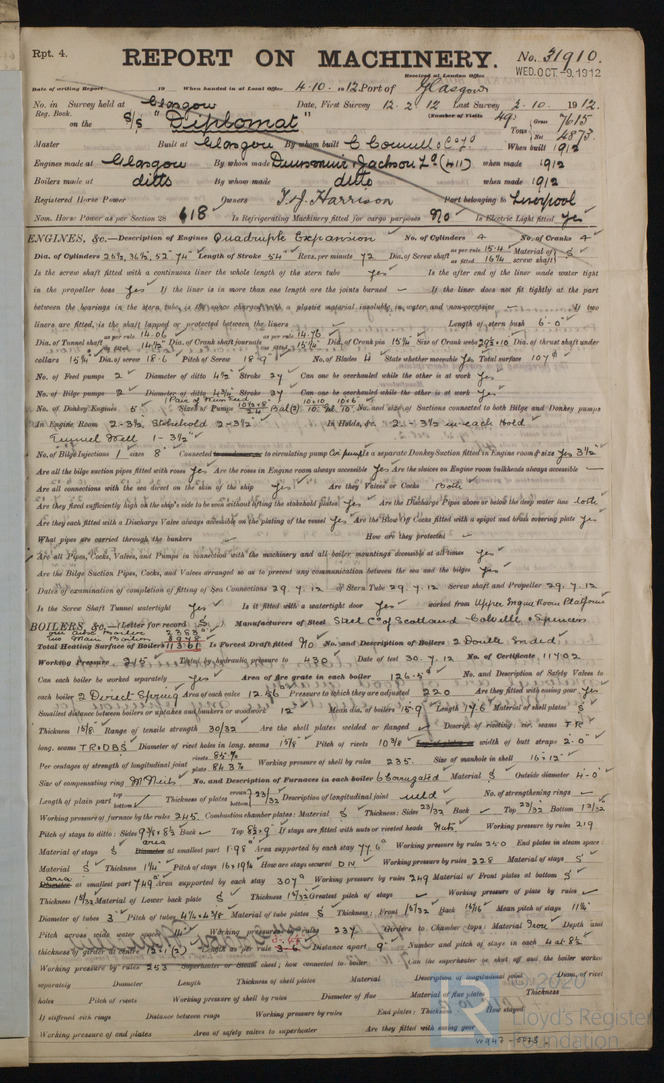 Rpt. 4.
REPORT ON MACHINERY. No. 31910.
Received at London Office WED. OCT -9. 1912
Date of writing Report 19 When handed in at Local Office 4.10.1912 Port of Glasgow
No. in Survey held at Glasgow Date, First Survey 12.2.12 Last Survey 2.10.1912
Reg. Book. (Number of Visits 49)
on the S/S "Diplomat" Tons Gross 7615 Net 4873
Master Built at Glasgow By whom built C Connell & Co Ld When built 1912
Engines made at Glasgow By whom made Dunsmuir & Jackson Ld (411) when made 1912
Boilers made at ditto By whom made ditto when made 1912
Registered Horse Power Owners T. & J. Harrison Port belonging to Liverpool
Nom. Horse Power as per Section 28 618 Is Refrigerating Machinery fitted for cargo purposes No Is Electric Light fitted Yes
ENGINES, &c.—Description of Engines Quadruple Expansion No. of Cylinders 4 No. of Cranks 4
Dia. of Cylinders 25½, 36½, 52, 74" Length of Stroke 54" Revs. per minute 72 Dia. of Screw shaft as per rule 15.4 as fitted 16¼ Material of screw shaft S
Is the screw shaft fitted with a continuous liner the whole length of the stern tube yes Is the after end of the liner made water tight
in the propeller boss yes If the liner is in more than one length are the joints burned — If the liner does not fit tightly at the part
between the bearings in the stern tube, is the space charged with a plastic material insoluble in water and non-corrosive — If two
liners are fitted, is the shaft lapped or protected between the liners — Length of stern bush 6-0"
Dia. of Tunnel shaft as per rule 14.06 as fitted 14½" Dia. of Crank shaft journals as per rule 14.76 as fitted 15¼" Dia. of Crank pin 15¼" Size of Crank webs 29½×10 Dia. of thrust shaft under
collars 15¼" Dia. of screw 18-6 Pitch of Screw 18-9" No. of Blades 4 State whether moveable Yes Total surface 107
No. of Feed pumps 2 Diameter of ditto 4½" Stroke 27 Can one be overhauled while the other is at work yes
No. of Bilge pumps 2 Diameter of ditto 4¾" Stroke 27 Can one be overhauled while the other is at work Yes
No. of Donkey Engines 5 Sizes of Pumps No. and size of Suctions connected to both Bilge and Donkey pumps
In Engine Room 2-3½ Stokehold 2-3½" In Holds, &c. 2-3½ in each Hold
Tunnel Well 1-3½"
No. of Bilge Injections 1 sizes 8" Connected to circulating pump Is a separate Donkey Suction fitted in Engine room & size Yes 3½"
Are all the bilge suction pipes fitted with roses Yes Are the roses in Engine room always accessible Yes Are the sluices on Engine room bulkheads always accessible —
Are all connections with the sea direct on the skin of the ship Yes Are they Valves or Cocks Both
Are they fixed sufficiently high on the ship's side to be seen without lifting the stokehold plates Yes Are the Discharge Pipes above or below the deep water line both
Are they each fitted with a Discharge Valve always accessible on the plating of the vessel Yes Are the Blow Off Cocks fitted with a spigot and brass covering plate Yes
What pipes are carried through the bunkers — How are they protected —
Are all Pipes, Cocks, Valves, and Pumps in connection with the machinery and all boiler mountings accessible at all times Yes
Are the Bilge Suction Pipes, Cocks, and Valves arranged so as to prevent any communication between the sea and the bilges Yes
Dates of examination of completion of fitting of Sea Connections 29.7.12 of Stern Tube 29.7.12 Screw shaft and Propeller 29.7.12
Is the Screw Shaft Tunnel watertight Yes Is it fitted with a watertight door yes worked from Upper Engine Room Platform
BOILERS, &c.—(Letter for record S) Manufacturers of Steel Steel Co of Scotland Colville & Spencer
Total Heating Surface of Boilers 11361 Is Forced Draft fitted No No. and Description of Boilers 2 Double Ended
Working Pressure 215 Tested by hydraulic pressure to 430 Date of test 30.7.12 No. of Certificate 11702
Can each boiler be worked separately Yes Area of fire grate in each boiler 126.5 No. and Description of Safety Valves to
each boiler 2 Direct Spring Area of each valve 12.56 Pressure to which they are adjusted 220 Are they fitted with easing gear Yes
Smallest distance between boilers or uptakes and bunkers or woodwork 12" Mean dia. of boilers 15-9 Length 17.6 Material of shell plates S
Thickness 1⅝ Range of tensile strength 30/32 Are the shell plates welded or flanged — Descrip. of riveting: cir. seams T R
long. seams TR:DBS Diameter of rivet holes in long. seams 1⅝ Pitch of rivets 10⅜ width of butt straps 2-0"
Per centages of strength of longitudinal joint rivets 85.% plate 84.3% Working pressure of shell by rules 235 Size of manhole in shell 16×12"
Size of compensating ring McNeils No. and Description of Furnaces in each boiler 6 Corrugated Material S Outside diameter 4-0"
Length of plain part top bottom Thickness of plates crown bottom 23/32 Description of longitudinal joint weld No. of strengthening rings —
Working pressure of furnace by the rules 245 Combustion chamber plates: Material S Thickness: Sides 23/32 Back — Top 23/32 Bottom 13/32
Pitch of stays to ditto: Sides 9¾×8½ Back — Top 8½×9 If stays are fitted with nuts or riveted heads Nuts Working pressure by rules 219
Material of stays S area at smallest part 1.98 Area supported by each stay 77.6 Working pressure by rules 250 End plates in steam space:
Material S Thickness 1¼" Pitch of stays 16×19¼ How are stays secured DN Working pressure by rules 228 Material of stays S
area at smallest part 7.49 Area supported by each stay 307 Working pressure by rules 249 Material of Front plates at bottom S
Thickness 15/32 Material of Lower back plate S Thickness 15/32 Greatest pitch of stays — Working pressure of plate by rules —
Diameter of tubes 3" Pitch of tubes 4¼×4⅛ Material of tube plates S Thickness: Front 15/32 Back 13/16 Mean pitch of stays 11¼
Pitch across wide water spaces Working pressures by rules 237 Girders to Chamber tops: Material Iron Depth and
thickness of girder at centre 12×1 (2) Length as per rule 3-6 Distance apart 9" Number and pitch of stays in each 4 at 8½
Working pressure by rules 253 Superheater or Steam chest; how connected to boiler Can the superheater be shut off and the boiler worked
separately Diameter Length Thickness of shell plates Material Description of longitudinal joint Diam. of rivet
holes Pitch of rivets Working pressure of shell by rules Diameter of flue Material of flue plates Thickness
If stiffened with rings Distance between rings Working pressure by rules End plates: Thickness How stayed
Working pressure of end plates Area of safety valves to superheater Are they fitted with easing gear
© 2020
Lloyd's Register
Foundation